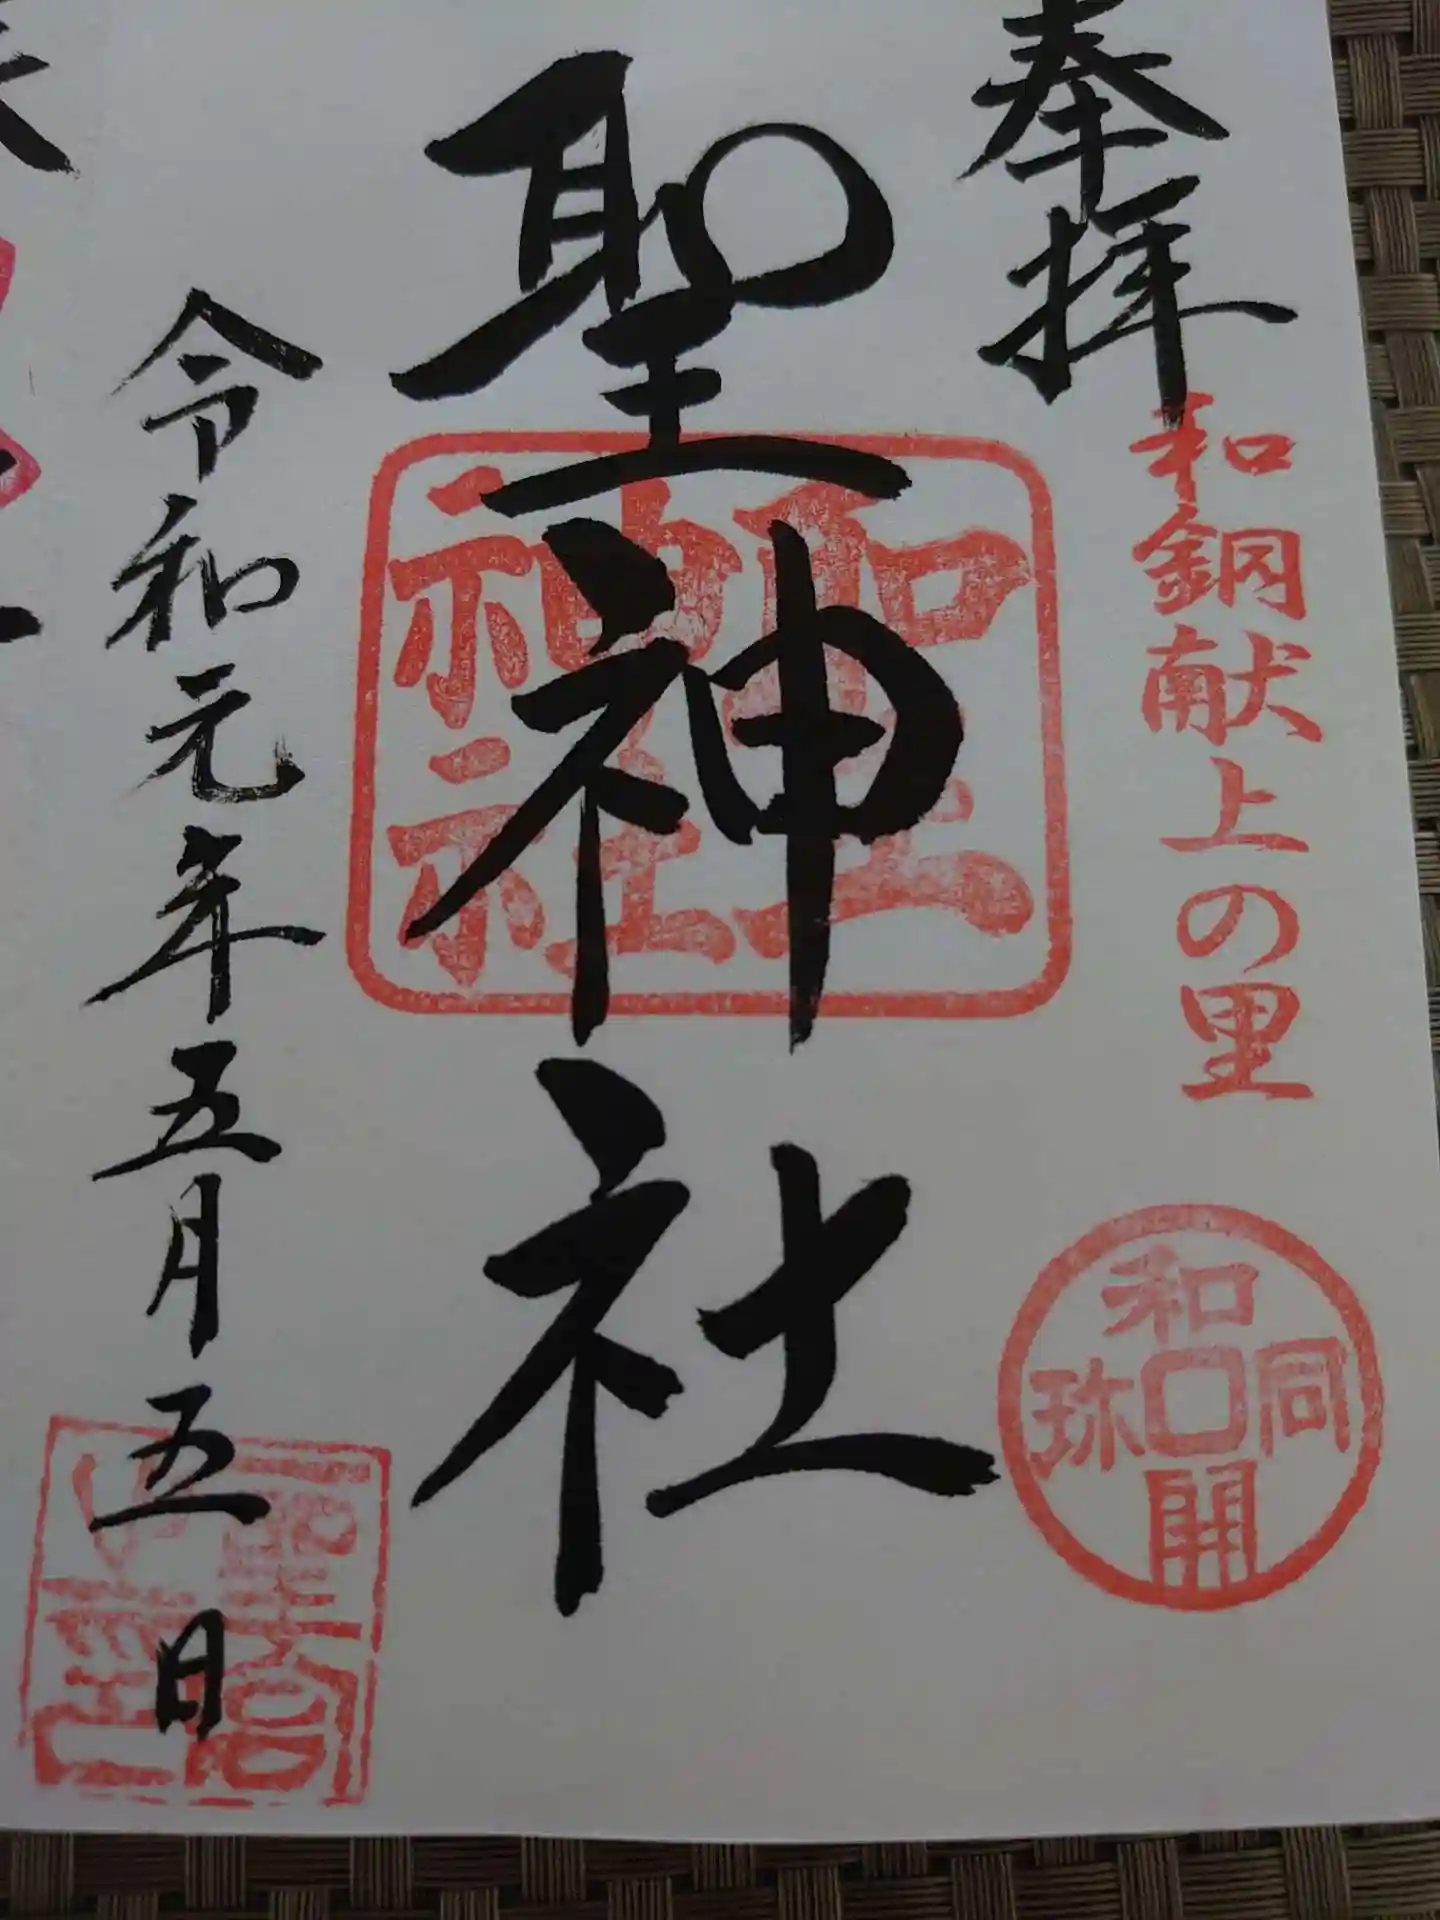 奉拝
和銅献上の里
和同開珎
聖神社
聖神社
令和元年五月五日